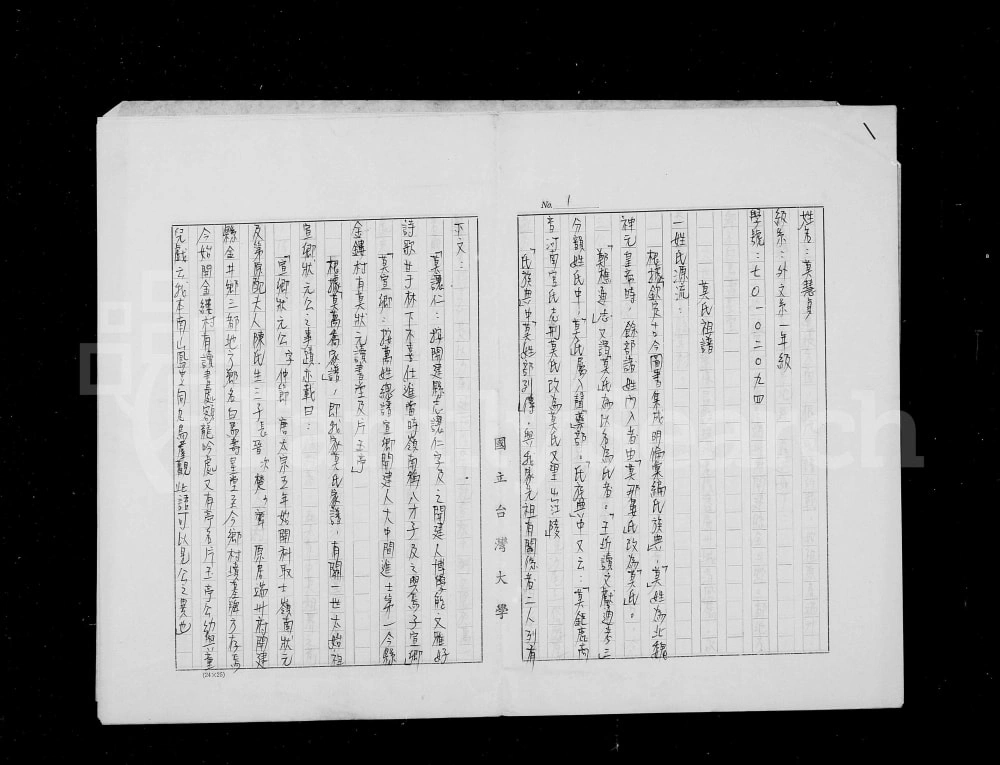 No. 1
姓名：莫慧貞
級系：外文系一年級
學號：七〇一〇二〇九四
莫氏祖譜
一姓氏源流：
根據欽定古今圖書集成明倫彙編氏族典：「莫」姓為北魏
神元皇帝時，餘部諸姓內入者由「莫」那婁氏改為「莫」氏。
「鄭樵通志」又謂莫氏為以名為氏者。「王圻續文獻通考」三
分類姓氏中，「莫」氏屬入聲藥部。「氏族典」中又云：「莫鉅鹿南
查河南官氏志邢莫氏改為莫氏又望出江陵
「氏族典」中「莫」姓部列傳，與我家先祖有關係者二人列有
國立台灣大學
下文：
「莫讓仁：按開建縣志讓仁字及之開建人博學能文雅好
詩歌甘于林下不喜仕進當時嶺南稱八才子及之與焉子宣卿」
「莫宣卿：按萬姓統譜宣卿開建人大中間進士第一今縣
金鏤村有莫狀元讀書堂及片玉亭」
根據莫萬喬家譜，即我家莫氏家譜，有關一世太始祖
宣卿狀元公之事蹟亦載曰：
「宣卿狀元公字仲節 唐太宗五年始開科取士嶺南狀元
及第原配大人陳氏生二子長晉次楚，齊 原居端州府開建
縣金井鄉三都地方鄉名白馬壽星堂至今鄉村墳墓牌方存焉
今始開金縷村有讀書處額龍吟處又有亭名片玉亭公幼與童
兒戲云我本南山鳳豈同凡鳥羣觀此語可以見公之異也
(24×25)